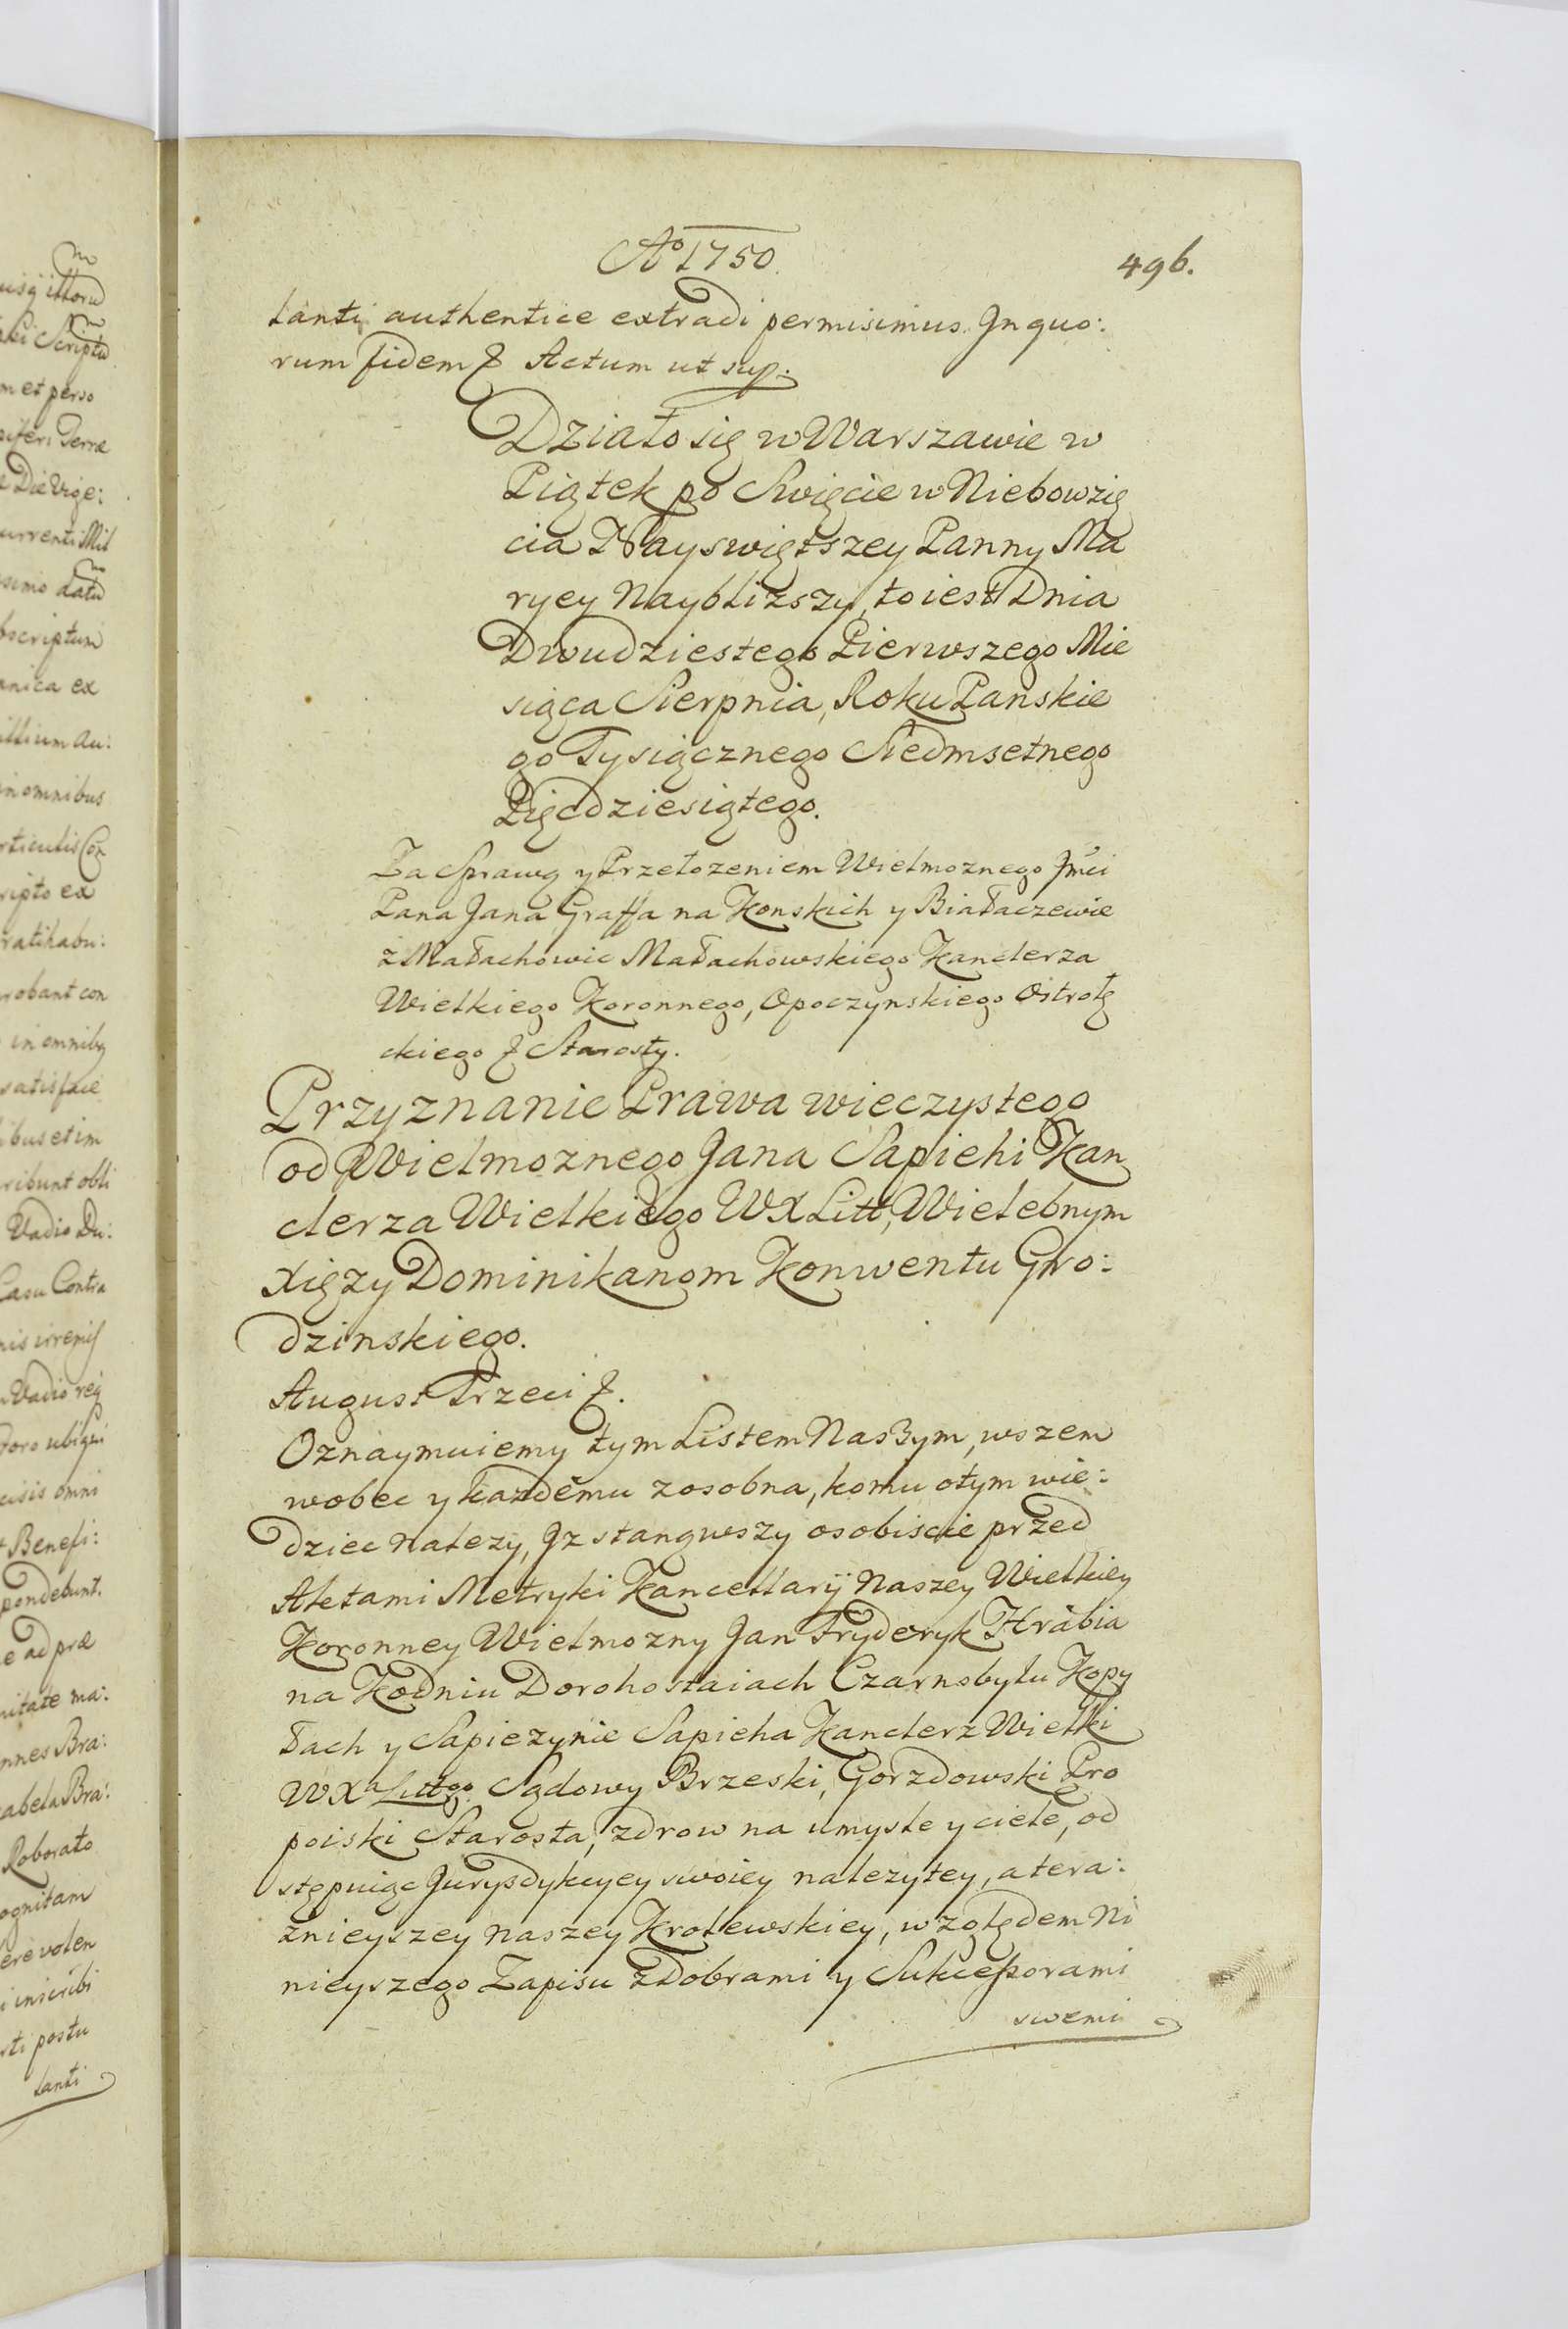 Aº 1750.
496.
lanti authentice extradi permisimus. Jn quo:
rum fidem & Actum ut sup.
Działo się w Warszawie w
Piątek po Swięcie w Niebowzię
cia Nayswiętszey Panny Ma
ryey Naybliższy, to iest Dnia
Dwudziestego Pierwszego Mie
siąca Sierpnia, Roku Panskie
go Tysiącznego Siedmsetnego
Pięcdziesiątego.
Za Sprawą y Przełozeniem Wielmoznego Jmci
Pana Jana Graffa na Konskich y Białaczewie
z Małachowic Małachowskiego Kanclerza
Wielkiego Koronnego, Opoczynskiego Ostrołę
ckiego & Starosty.
Przyznanie Prawa wieczystego
od Wielmoznego Jana Sapiehi Kan
clerza Wielkiego WXLitt, Wielebnym
Xięzy Dominikanom Konwentu Gro:
dzinskiego.
August Trzeci &.
Oznaymuiemy tym Listem Naszym, wszem
wobec y kazdemu zosobna, komu otym wie:
dziec nalezy, Jz stanąwszy osobiscie przed
Aktami Metryki Kancellaryi Naszey Wielkiey
Koronney Wielmozny Jan Fryderyk Hrabia
na Kodniu Dorohostaiach Czarnobylu Kopy
łach y Sapiezynie Sapieha Kanclerz Wielki
WXa Littgo. Sądowy Brzeski, Gorzdowski Pro
poiski Starosta, zdrow na umysle y ciele, od
stępuiąc Jurysdykcyey swoiey nalezytey, a tera:
znieyszey naszey Krolewskiey, względem Ni
nieyszego Zapisu z Dobrami y Sukcessorami
swemi
usq illoru
ski Scriptu
m et perso
piferi Terræ
e Die Vige:
urrenti Mil
simo datu
bscriptum
anica ex
illium au:
in omnibus
rticulis Con
ripto ex
ratihabu:
robant con
in omnibq
satisface
ibus et im
ribunt obli
Vadio Du:
Casu Contra
Vadio req
Foro ubiqui
cisis omni
t Benefi:
pondebunt.
e ad præ
nitate ma:
nnes Bra:
abela Bra:
Roborato
ognitam
ere volen
i inscribi
rti postu
lanti